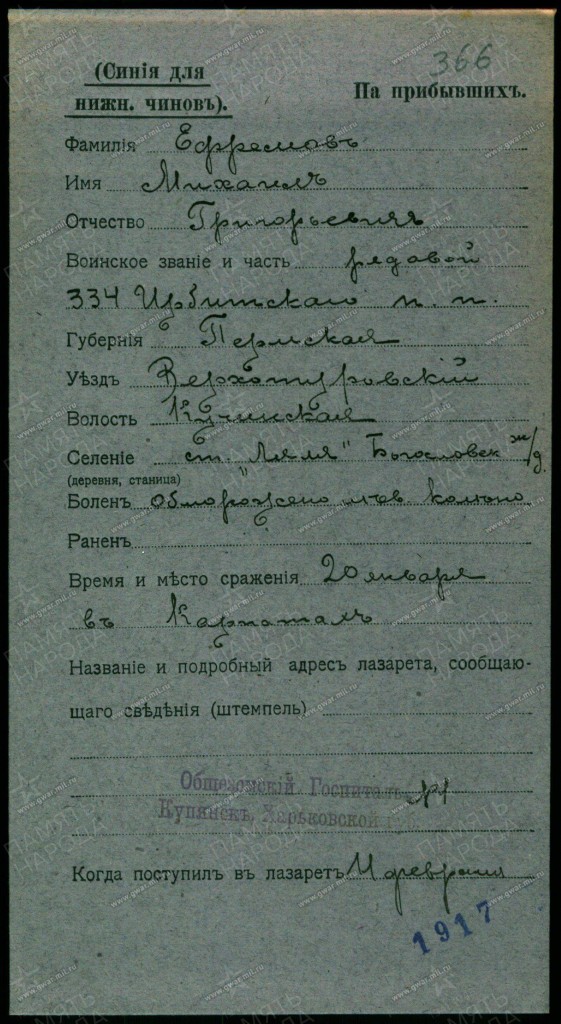 366
(Синія для
нижн. чиновъ).
На прибывшихъ.
Фамилія Ефремовъ
Имя Михаилъ
Отчество Григорьевичъ
Воинское званіе и часть рядовой
334 Ирбитскаго п. п.
Губернія Пермская
Уѣздъ Верхотуровскій
Волость Кучинская
Селеніе ст. "Ляля" Богословск ж/д.
(деревня, станица)
Боленъ Обморожено лѣв. колѣно
Раненъ
Время и мѣсто сраженія 20 января
въ Карпатахъ
Названіе и подробный адресъ лазарета, сообщаю-
щаго свѣдѣнія (штемпель)
Общеземскій Госпиталь №1
Купянскъ, Харьковской
Когда поступилъ въ лазаретъ 11 февраля
1917